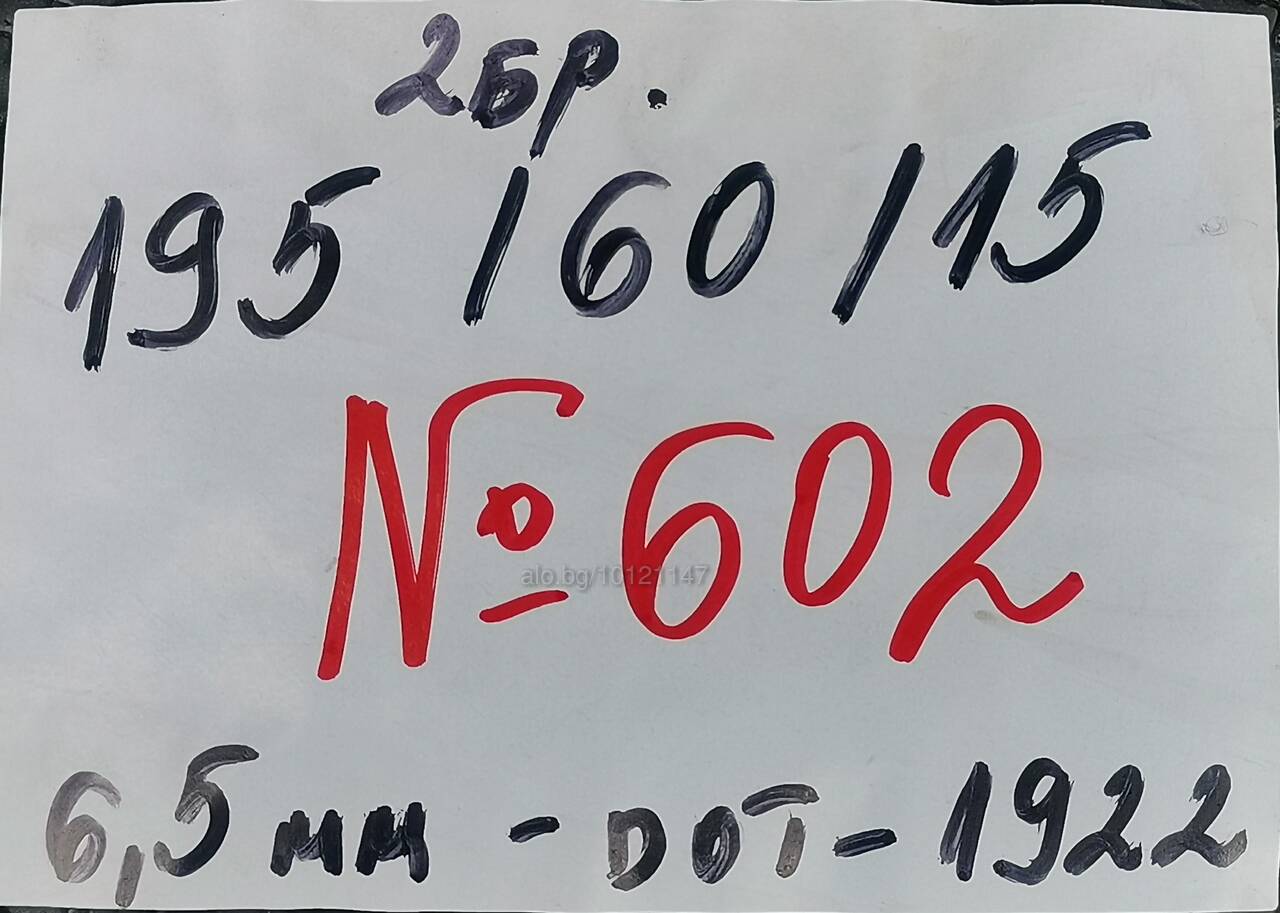 2бр.
195/60/15
№602
alo.bg/10121147
6,5мм - DOT- 1922